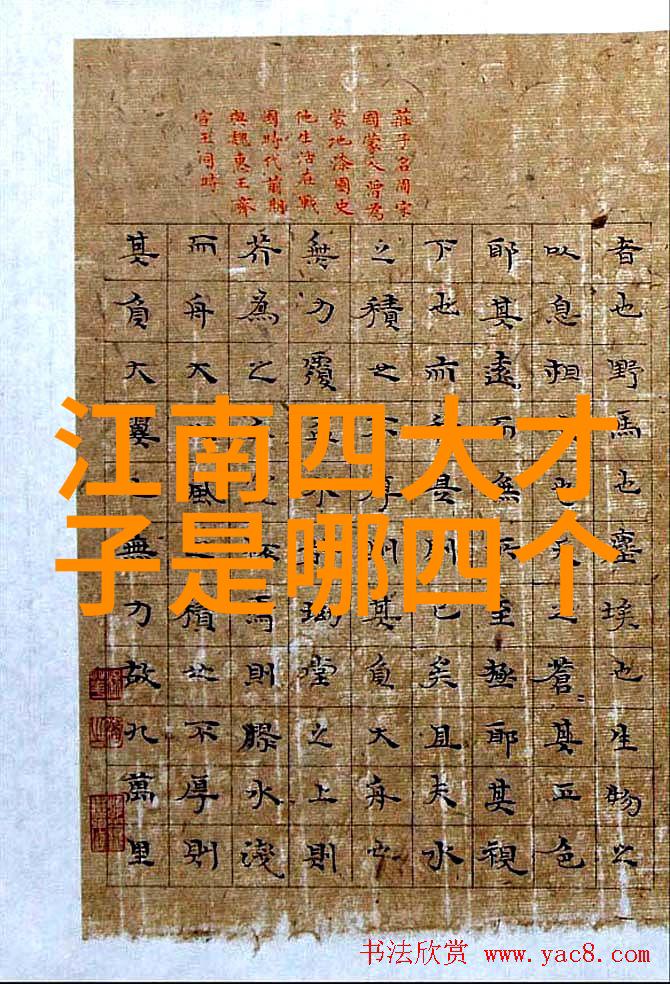 莊子名周宋
國蒙人曾為
蒙地漆園史
他生活在戰
國時代前期
與魏惠王齊
宣王同時
者也野馬也塵埃也生物之
以息相也天之蒼〻其正色
耶其遠而無所至極耶其視
下也則已矣且夫水
之積也不厚則其負大舟也
無力覆盃水坳堂之上則
芥為之杯焉則膠水淺
而舟大風積也不厚則
其負大翼無力故九萬里
江南四大才
子是哪四个
书法欣赏 www.yac8.com